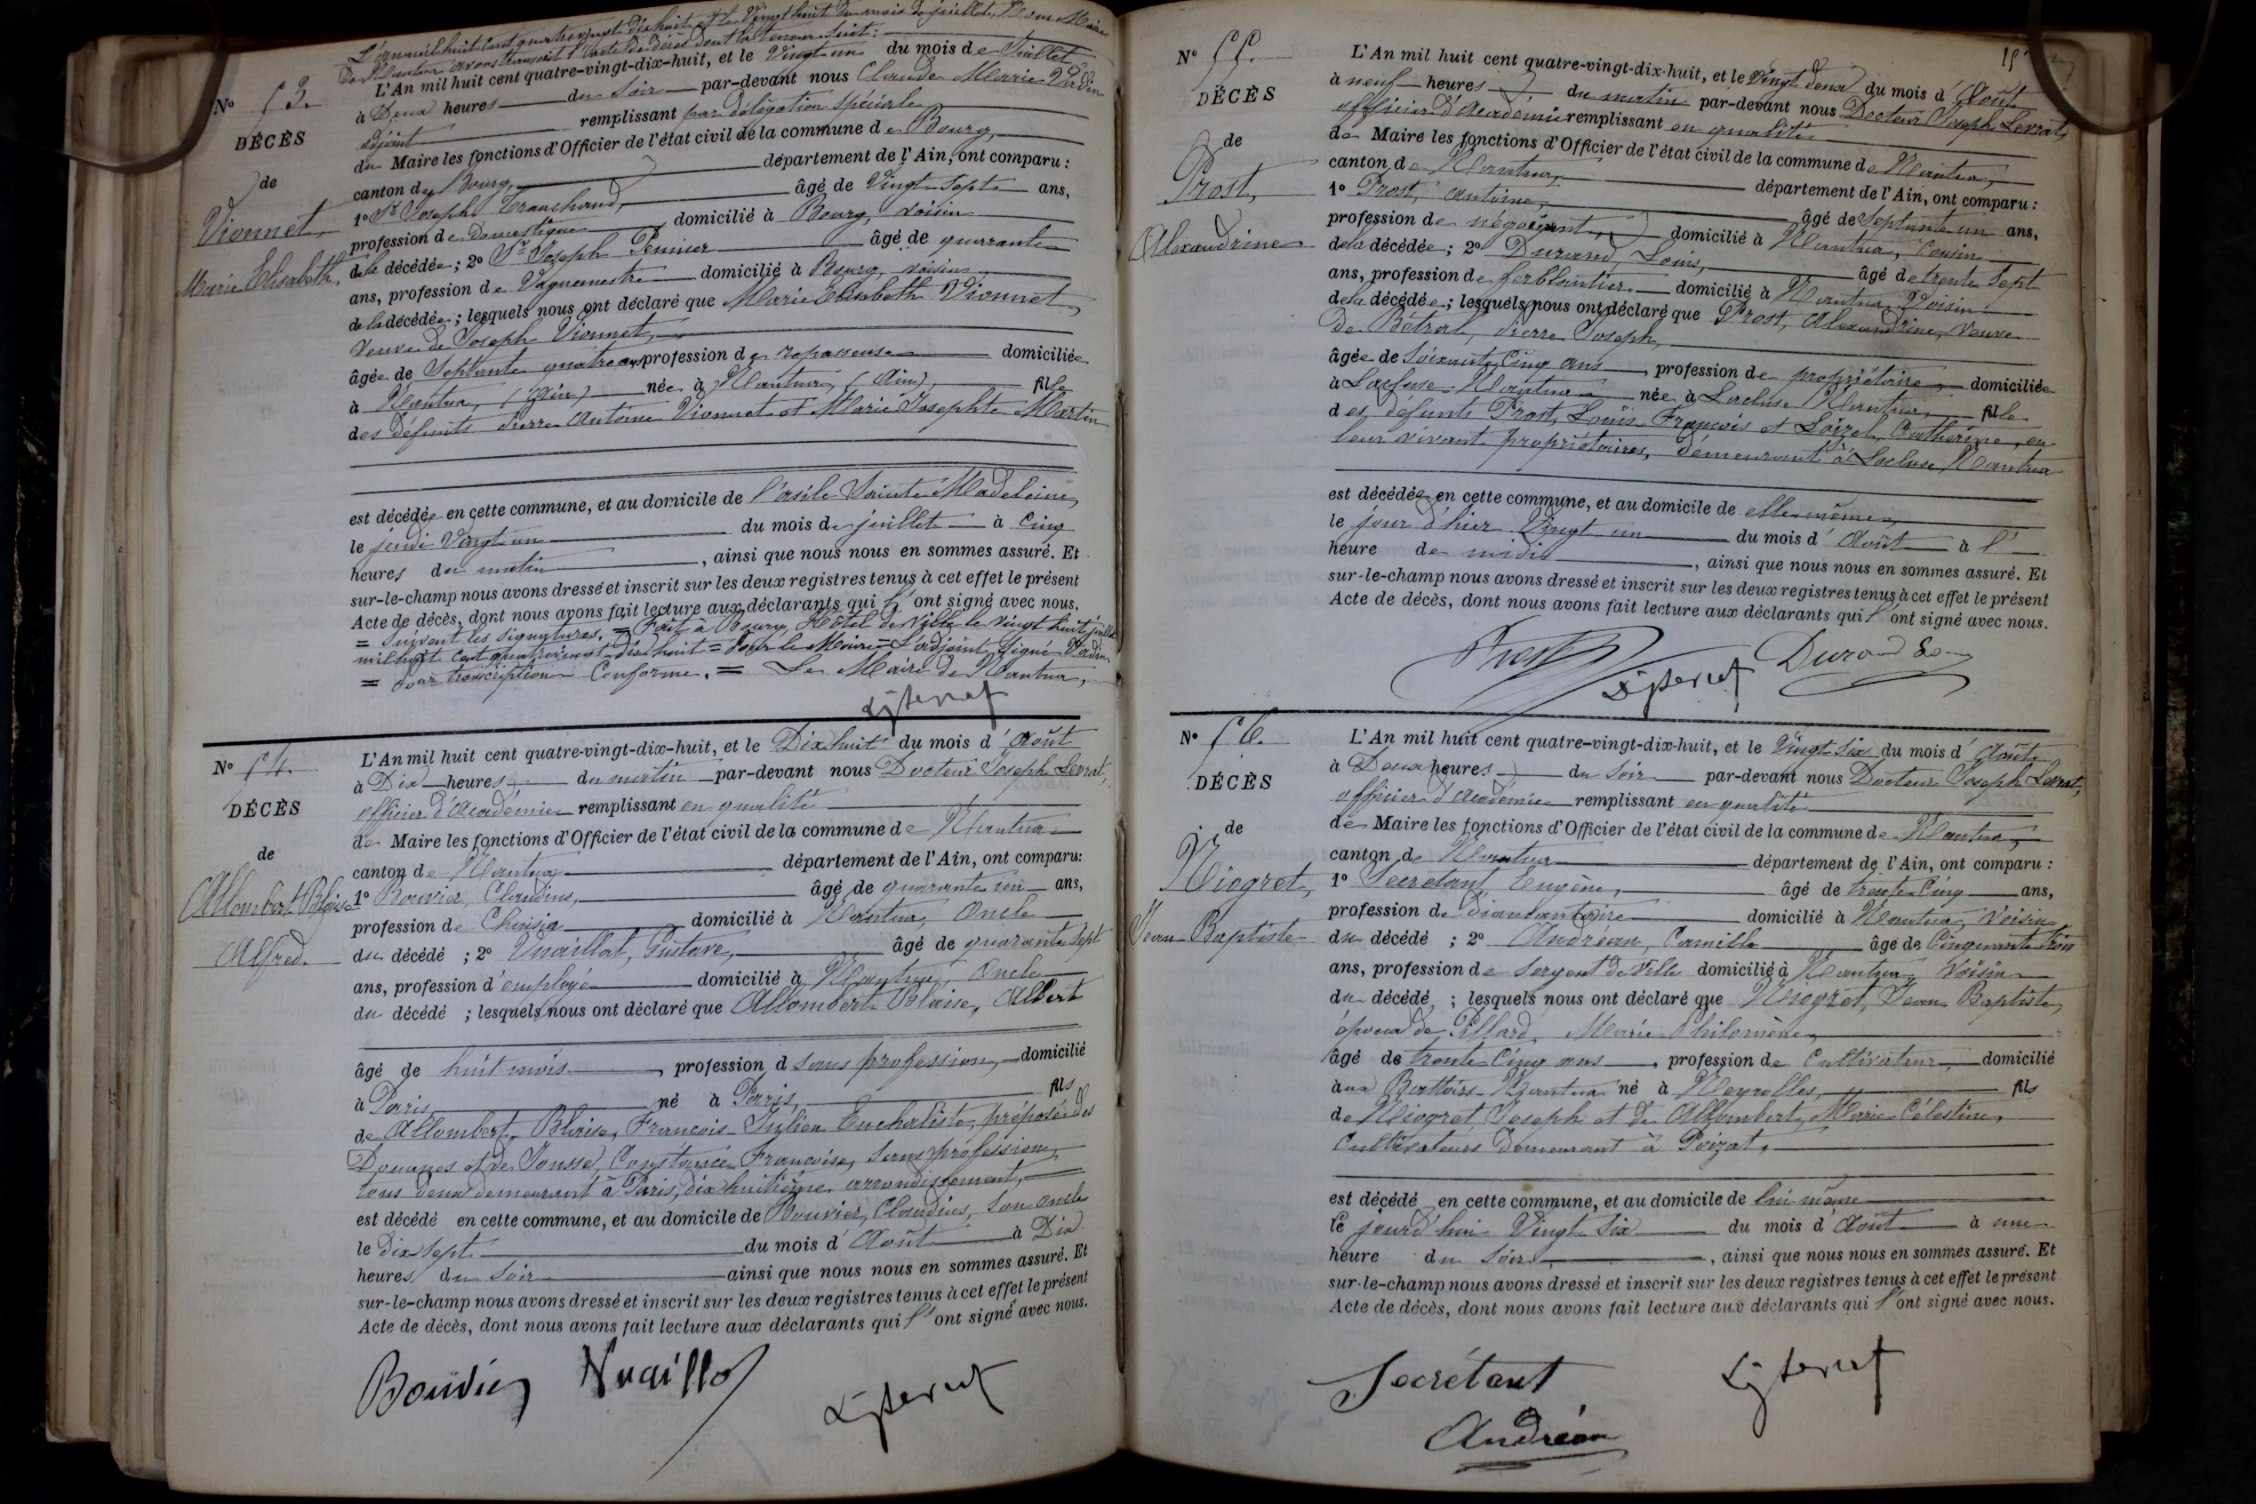 L'an mil huit cent quatre vingt dix huit et le Vingt huit du mois de juillet, Nous Maire
De Nantua avons transcrit l'acte de décès dont la teneur suit :
N° 53.
L'An mil huit cent quatre-vingt-dix-huit, et le Vingt un du mois de Juillet
à Deux heures du soir par-devant nous Claude Marie Verdin
adjoint remplissant par délégation spéciale
DÉCÈS
du Maire les fonctions d'Officier de l'état civil de la commune de Bourg,
de
canton de Bourg, département de l'Ain, ont comparu :
Vionnet,
1° Sr Joseph Tranchand, âgé de Vingt sept ans,
profession de Domestique domicilié à Bourg, voisin
Marie Elisabeth.
de la décédée ; 2° Sr Joseph âgé de quarante
ans, profession de Vaguemestre domicilié à Bourg, voisin
de la décédée ; lesquels nous ont déclaré que Marie Elisabeth Vionnet,
Veuve de Joseph Vionnet,
âgée de Septante quatre ans profession de repasseuse domiciliée
à Nantua, (Ain) née à Nantua, (Ain), fille
des défunts Pierre Antoine Vionnet et Marie Josephte Martin
est décédée en cette commune, et au domicile de l'asile Sainte Madeleine,
le jeudi Vingt un du mois de juillet à Cinq
heures du matin, ainsi que nous nous en sommes assuré. Et
sur-le-champ nous avons dressé et inscrit sur les deux registres tenus à cet effet le présent
Acte de décès, dont nous avons fait lecture aux déclarants qui l'ont signé avec nous.
= Suivent les signatures. = Fait à Bourg, Hôtel de Ville le Vingt huit juillet
mil huit cent quatre vingt dix huit = Pour le Maire = L'adjoint, Signé Verdin
= Pour transcription Conforme. = Le Maire de Nantua,
N° 54.
L'An mil huit cent quatre-vingt-dix-huit, et le Dix huit du mois d'Août
à Dix heures du matin par-devant nous Docteur Joseph Levrat,
DÉCÈS
officier d'Académie remplissant en qualité
de Maire les fonctions d'Officier de l'état civil de la commune de Nantua
de
canton de Nantua département de l'Ain, ont comparu :
Allombert Blaise
1° Bouvier, Claudius, âgé de quarante un ans,
profession de domicilié à Nantua, Oncle
Alfred.
du décédé ; 2° Vuaillat, Gustave, âgé de quarante sept
ans, profession d'employé domicilié à Nantua Oncle
du décédé ; lesquels nous ont déclaré que Allombert Blaise, Albert
âgé de huit mois, profession d sans profession, domicilié
à Paris, né à Paris, fils
de Allombert Blaise, François Julien Eucharliste, préposé des
Douanes et de Constance Françoise, Sans profession,
tous deux demeurant à Paris, dix huitième arrondissement,
est décédé en cette commune, et au domicile de Bouvier, Claudius, Son oncle
le dix sept du mois d'Août à Dix
heures du Soir ainsi que nous nous en sommes assuré. Et
sur-le-champ nous avons dressé et inscrit sur les deux registres tenus à cet effet le présent
Acte de décès, dont nous avons fait lecture aux déclarants qui l'ont signé avec nous.
Bouvier Vuaillat
N° 55.
L'An mil huit cent quatre-vingt-dix-huit, et le Vingt deux du mois d'Août
à neuf heures du matin par-devant nous Docteur Joseph Levrat,
DÉCÈS
officier d'Académie remplissant en qualité
de Maire les fonctions d'Officier de l'état civil de la commune de Nantua,
de
canton de Nantua, département de l'Ain, ont comparu :
Prost,
1° Prost, antoine, âgé de Septante un ans,
profession de négociant, domicilié à Nantua, Cousin
Alexandrine
de la décédée ; 2° Durand Louis, âgé de trente Sept
ans, profession de ferblantier domicilié à Nantua Voisin
de la décédée ; lesquels nous ont déclaré que Prost, Alexandrine, Veuve
de Bétral, Pierre Joseph,
âgée de Soixante Cinq ans, profession de propriétaire, domiciliée
à Lacluse Nantua née à Lacluse Nantua, fille
des défunts Prost, Louis François et Loizel, Catherine, en
leur vivant propriétaires, demeurant à Lacluse Nantua
est décédée en cette commune, et au domicile de elle même,
le jour d'hier Vingt un du mois d'Août à l'
heure de midi, ainsi que nous nous en sommes assuré. Et
sur-le-champ nous avons dressé et inscrit sur les deux registres tenus à cet effet le présent
Acte de décès, dont nous avons fait lecture aux déclarants qui l'ont signé avec nous.
Prost Durand
N° 56.
L'An mil huit cent quatre-vingt-dix-huit, et le Vingt Six du mois d'Août
à Deux heures du Soir par-devant nous Docteur Joseph Levrat,
DÉCÈS
officier d'Académie remplissant en qualité
de
de Maire les fonctions d'Officier de l'état civil de la commune de Nantua,
canton de Nantua département de l'Ain, ont comparu :
Niogret,
1° Secrétant, Eugène, âgé de trente Cinq ans,
profession de Diamantaire domicilié à Nantua, Voisin
Jean Baptiste
du décédé ; 2° Andréan, Camille âgé de Cinquante trois
ans, profession de Sergent de Ville domicilié à Nantua, Voisin
du décédé ; lesquels nous ont déclaré que Niogret, Jean Baptiste,
époux de Pillard Marie Philomène,
âgé de trente Cinq ans, profession de Cultivateur, domicilié
aux Battoirs Nantua né à Neyrolles, fils
de Niogret Joseph et de Allombert, Marie Célestine,
Cultivateurs demeurant à Poizat,
est décédé en cette commune, et au domicile de lui même
le jourd'hui Vingt Six du mois d'Août à une
heure du Soir, ainsi que nous nous en sommes assuré. Et
sur-le-champ nous avons dressé et inscrit sur les deux registres tenus à cet effet le présent
Acte de décès, dont nous avons fait lecture aux déclarants qui l'ont signé avec nous.
Secrétant
Andréan